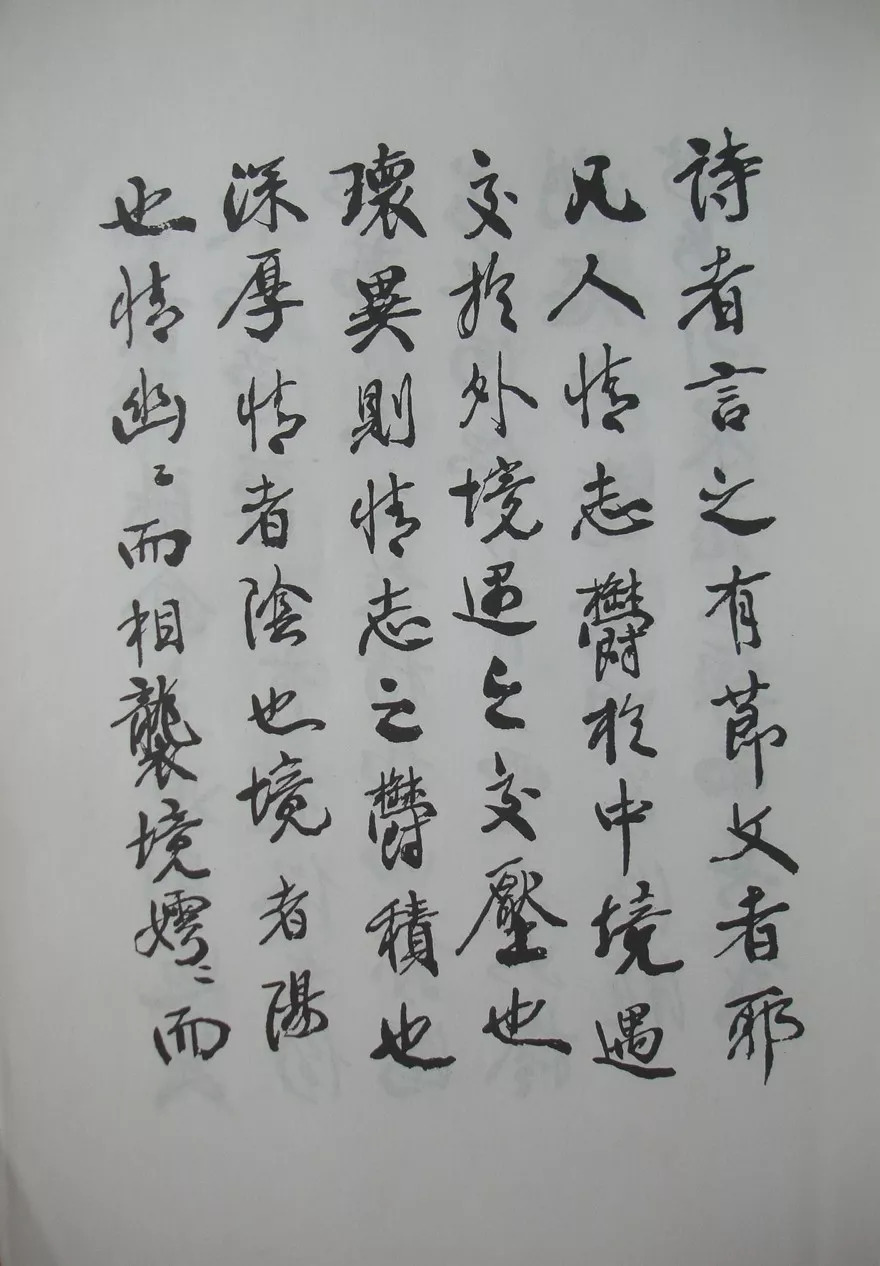 詩者言之有節文者耶
凡人情志鬱於中境遇
交於外境遇之交壓也
瓌異則情志之鬱積也
深厚情者陰也境者陽
也情幽〻而相襲境嫮〻而